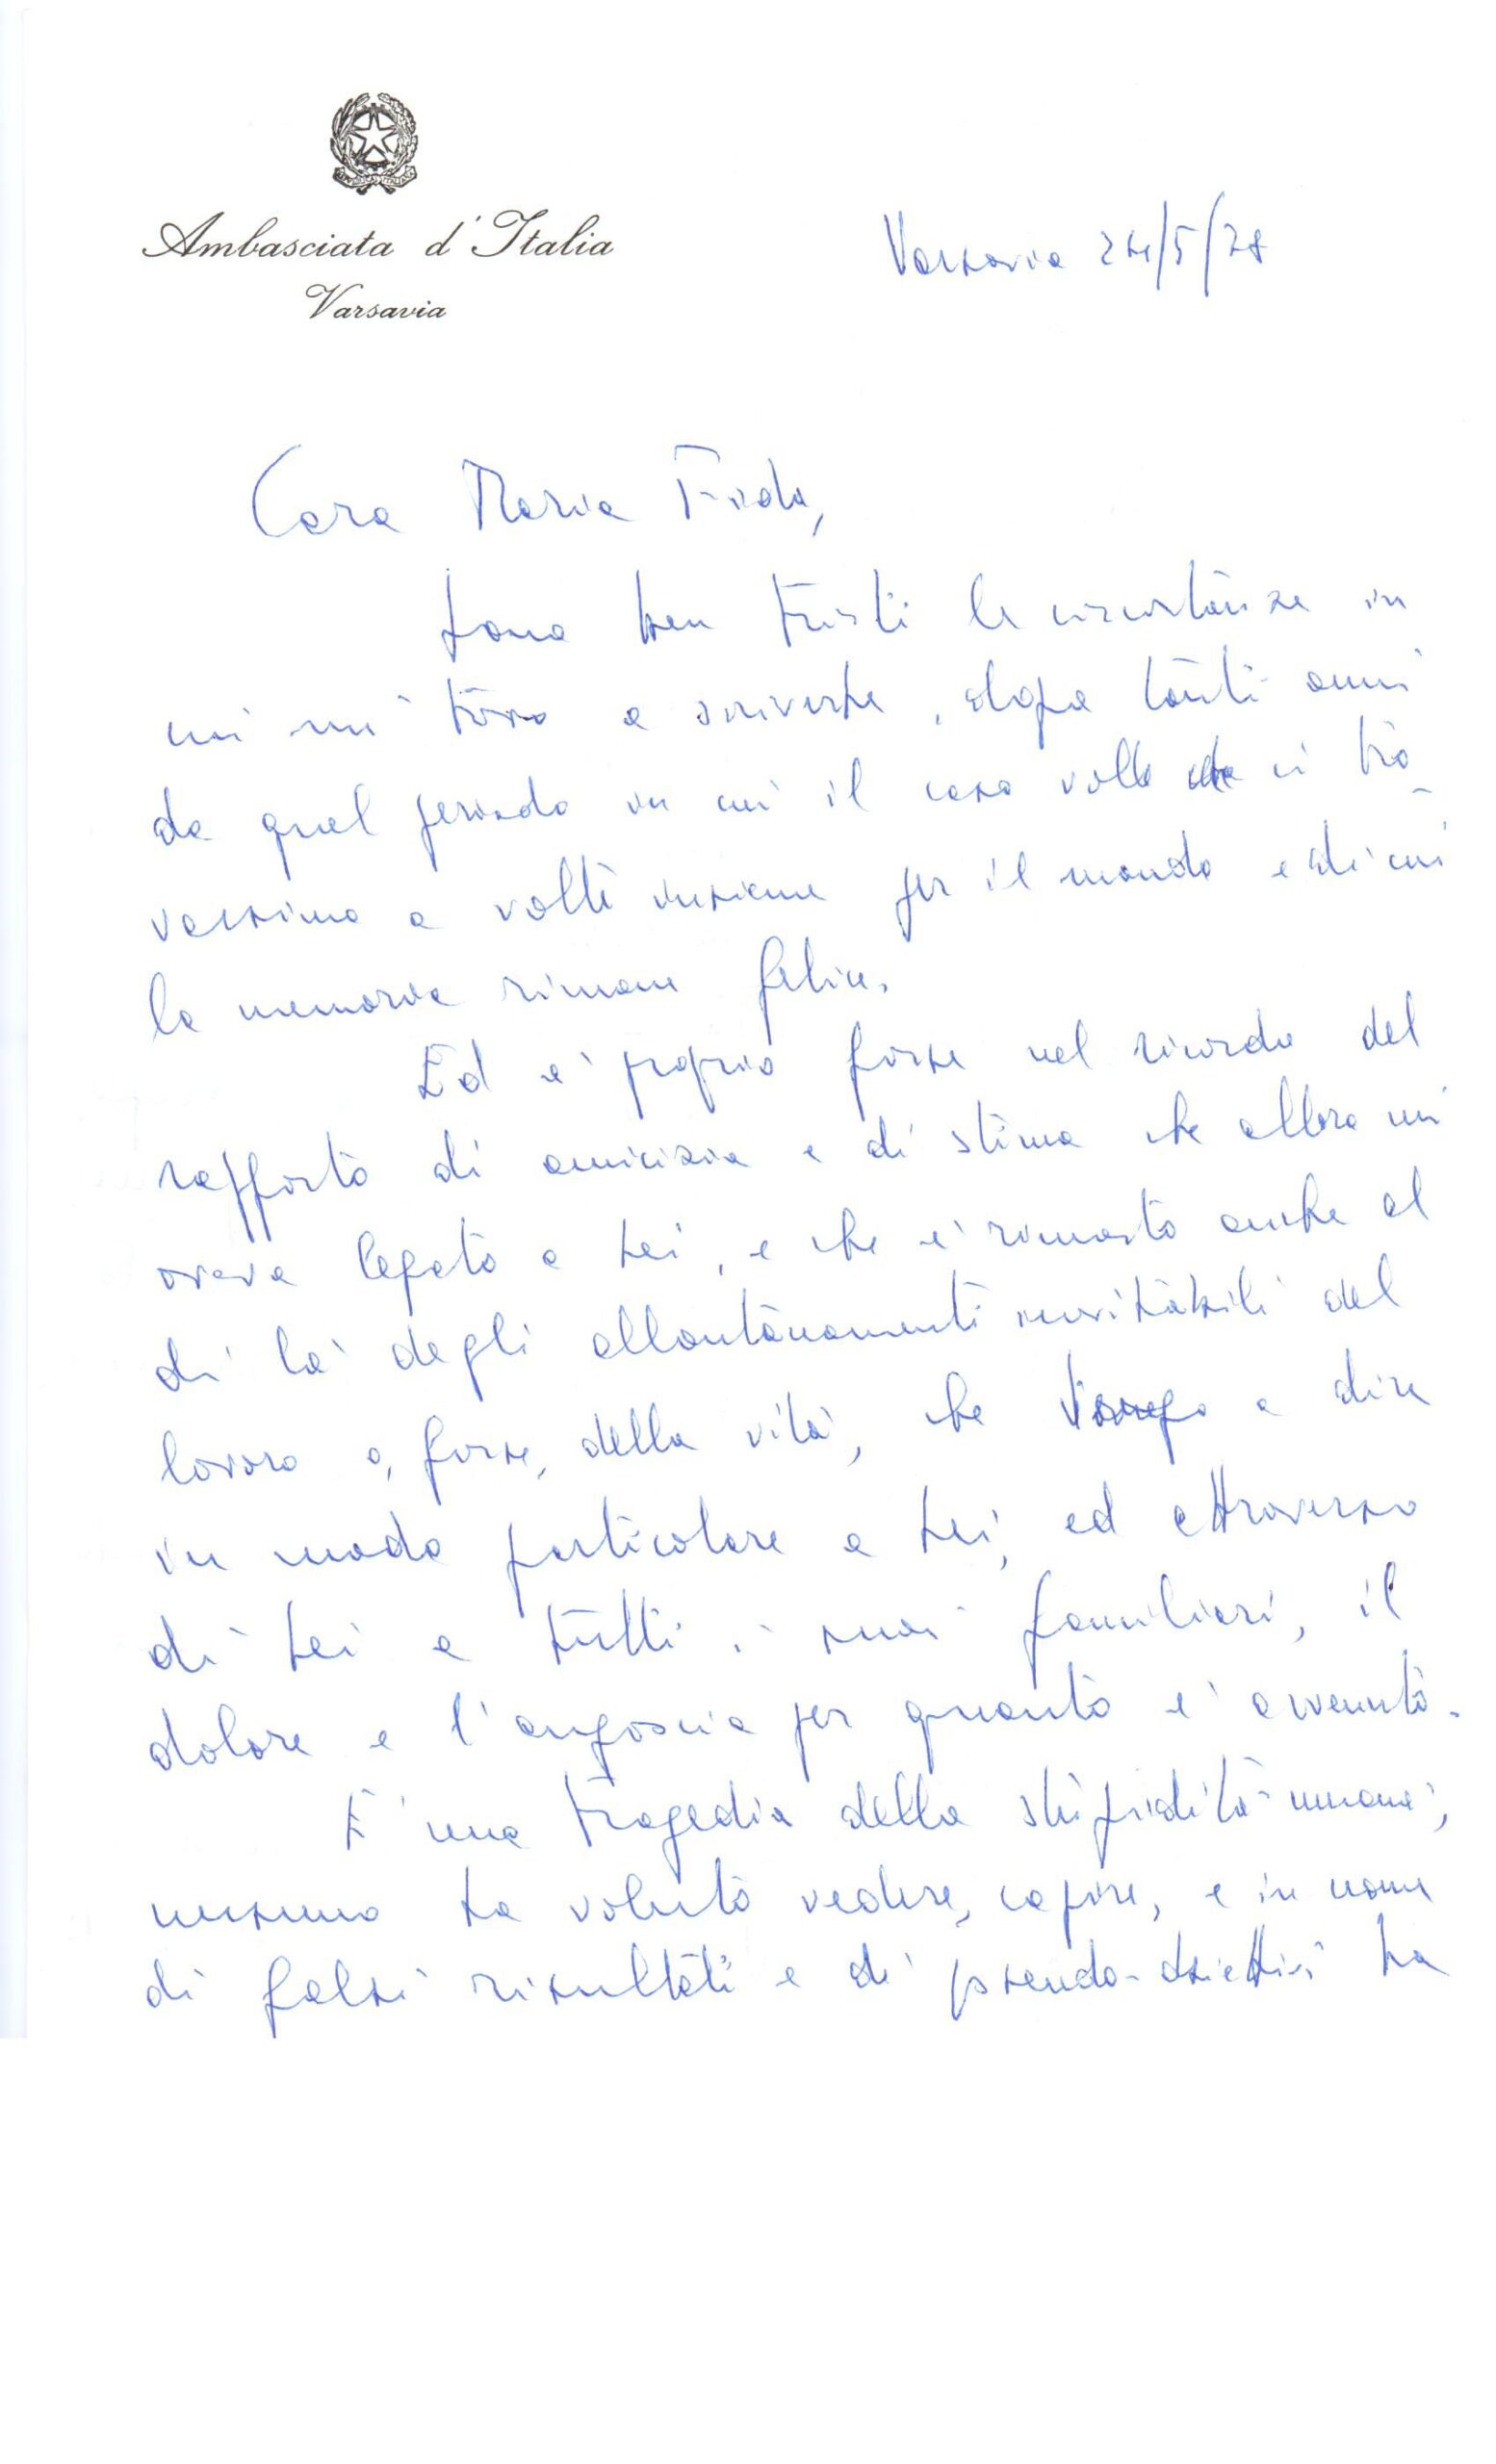 Ambasciata d'Italia
Varsavia
Varsavia 24/5/78
Cara Maria Fida,
sono ben tristi le circostanze in
cui mi trovo a scriverLe, dopo tanti anni
da quel periodo in cui il caso volle che ci tro-
vassimo a volte insieme per il mondo e di cui
la memoria rimane felice.
Ed e' proprio forse nel ricordo del
rapporto di amicizia e di stima che allora mi
aveva legato a Lei, e che e' rimasto anche al
di la' degli allontanamenti inevitabili del
lavoro o, forse, della vita, che vengo a dire
in modo particolare a Lei, ed attraverso
di Lei a tutti i suoi familiari, il
dolore e l'angoscia per quanto e' avvenuto.
E' una tragedia della stupidita' umana;
nessuno ha voluto vedere, capire, e in nome
di falsi risultati e di pseudo-obiettivi ha